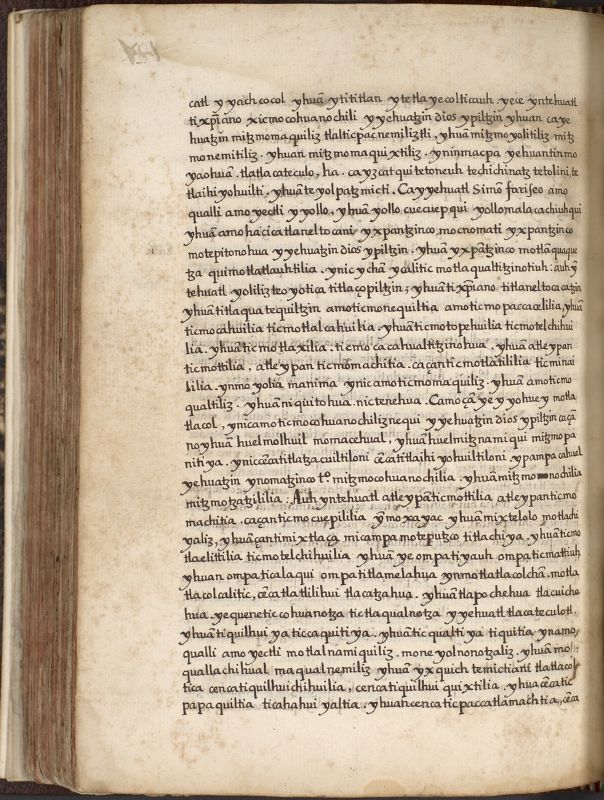 catl y yach cocol yhuā ytititlan ytetlayecolticauh yece yntehuatl
tixp̄iano xicmocohuanochili yyehuatzin dios ypiltzin yhuan ca ye
huatzin mitzmomaquiliz tlalticpac nemiliztli, yhuā mitzmoyolitiliz mitz
monemitiliz. yhuan mitzmomaquixtiliz. yninmacpa yehuantin mo
yaohuā. tlatlacateculo, ha. ca yzcatqui tetoneuh techichinatz tetolini, te
tlaihiyohuilti, yhuā teyolpatzmicti. Ca yyehuatl Simō fariseo amo
qualli amo yectli yyollo, yhuā yollo cuecuepqui yollomalacachiuhqui
yhuā amo hacicatlaneltocani yxpantzinco, mocnomati yxpantzinco
motepitonohua yyehuatzin dios ypiltzin. yhuā yxpātzinco motlāquaque
tza quimotlatlauhtilia. ynic ychā ycalitic motlaqualtitzinotiuh: auh ȳ
tehuatl yoliliz teoyotica titlaçopiltzin; yhuā tixp̄iano titlaneltocatzin
yhuā titlaquatequiltzin amo ticmonequiltia amo ticmopaccacelilia, yhuā
ticmocahuilia ticmotlalcahuilia. yhuā ticmotopehuilia ticmotelchihui
lia. yhuā ticmotlaxilia. ticmocacahualtitzinohua. yhuā atle ypan
ticmottilia, atle ypan ticmomachitia. caçan ticmotlatililia ticminai
lilia. ynmo yolia manima ynic amo ticmomaquiliz. yhuā amo ticmo
qualtiliz. yhuā niquitohua nictenehua. Camo çā ye yyohue y motla
tlacol, ynic amo ticmocohuanochiliznequi yyehuatzin dios ypiltzin caçā
no yhuā huel molhuil momacehual, yhuā huel mitznamiqui mitzmopa
nitiya. yniccēca titlatzacuiltiloni cēca titlaihiyohuiltiloni ypampa cahuel
yehuatzin ynomatzinco t.º mitzmocohuanochilia. yhuā mitzmonochilia
mitzmotzatzililia: Auh yntehuatl atle ypā ticmottilia atle ypan ticmo
machitia. caçan ticmocuepililia ȳmo xayac yhuā mixtelolo motlachi
yaliz, yhuā çan timixtlaça micampa moteputzco titlachiya. yhuā ticmo
tlaelittilia ticmotelchihuilia yhuā ye ompa tiyauh ompa ticmattiuh
yhuan ompa ticalaqui ompa titlamelahua ynmotlatlacolchā. motla
tlacolcalitic, cēca tlatlilihui tlacatzahua. yhuā tlapochehua tlacuiche
hua. yequene ticcohuanotza tictlaqualnotza yyehuatl tlacateculotl.
yhuā tiquilhui ya ticcaquitiya. yhuā ticqualtiya tiquitia ynamo
qualli amo yectli motlalnamiquiliz. moneyolnonotzaliz. yhuā mo
quallachihual maqualnemiliz yhuā yxquich temictiani tlatlacol
tica cencatiquilhuichihuilia, cencatiquilhuiquixtilia. yhuā cēca tic
papaquiltia ticahahuiyaltia. yhuan cenca ticpaccatlamachtia, cēca